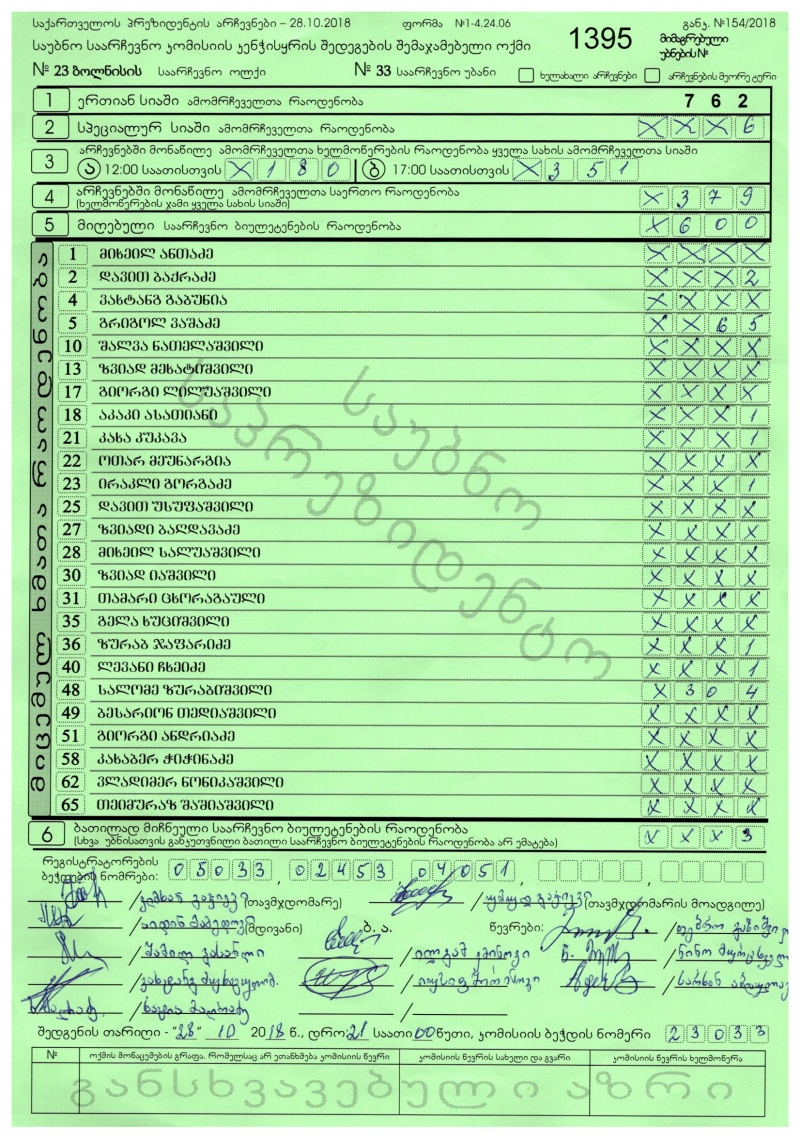 საქართველოს პრეზიდენტის არჩევნები – 28.10.2018 ფორმა №1-4.24.06 განკ. №154/2018
საუბნო საარჩევნო კომისიის კენჭისყრის შედეგების შემაჯამებელი ოქმი 1395 მიმაგრებული უბნების №
№ 23 ბოლნისის საარჩევნო ოლქი № 33 საარჩევნო უბანი ხელახალი არჩევნები არჩევნების მეორე ტური
1 ერთიან სიაში ამომრჩეველთა რაოდენობა 7 6 2
2 სპეციალურ სიაში ამომრჩეველთა რაოდენობა X X X 6
3 არჩევნებში მონაწილე ამომრჩეველთა ხელმოწერების რაოდენობა ყველა სახის ამომრჩეველთა სიაში
ა 12:00 საათისთვის X 1 8 0 ბ 17:00 საათისთვის X 3 5 1
4 არჩევნებში მონაწილე ამომრჩეველთა საერთო რაოდენობა X 3 7 9
(ხელმოწერების ჯამი ყველა სახის სიაში)
5 მიღებული საარჩევნო ბიულეტენების რაოდენობა X 6 0 0
მიცემულ ხმათა რაოდენობა
1 მიხეილ ანთაძე X X X X
2 დავით ბაქრაძე X X X 2
4 ვახტანგ გაბუნია X X X X
5 გრიგოლ ვაშაძე X X 6 5
10 შალვა ნათელაშვილი X X X X
13 ზვიად მეხატიშვილი X X X X
17 გიორგი ლილუაშვილი X X X X
18 აკაკი ასათიანი X X X 1
21 კახა კუკავა X X X 1
22 ოთარ მეუნარგია X X X X
23 ირაკლი გორგაძე X X X 1
25 დავით უსუფაშვილი X X X X
27 ზვიადი ბაღდავაძე X X X X
28 მიხეილ სალუაშვილი X X X X
30 ზვიად იაშვილი X X X X
31 თამარი ცხორაგაული X X X X
35 გელა ხუციშვილი X X X X
36 ზურაბ ჯაფარიძე X X X 1
40 ლევანი ჩხეიძე X X X 1
48 სალომე ზურაბიშვილი X 3 0 4
49 ბესარიონ თედიაშვილი X X X X
51 გიორგი ანდრიაძე X X X X
58 კახაბერ ჭიჭინაძე X X X X
62 ვლადიმერ ნონიკაშვილი X X X X
65 თეიმურაზ შაშიაშვილი X X X X
საუბნო
საპრეზიდენტო
6 ბათილად მიჩნეული საარჩევნო ბიულეტენების რაოდენობა X X X 3
(სხვა უბნისათვის განკუთვნილი ბათილი საარჩევნო ბიულეტენების რაოდენობა არ ემატება)
რეგისტრატორების
ბეჭდების ნომრები: 0 5 0 3 3 , 0 2 4 5 3 , 0 4 0 5 1 ,
(თავმჯდომარე) (თავმჯდომარის მოადგილე)
(მდივანი) ბ. ა. წევრები:
შედგენის თარიღი - "28" 10 2018 წ., დრო: 21 საათი 00 წუთი, კომისიის ბეჭდის ნომერი 2 3 0 3 3
№ ოქმის მონაცემების გრაფა, რომელსაც არ ეთანხმება კომისიის წევრი კომისიის წევრის სახელი და გვარი კომისიის წევრის ხელმოწერა
განსხვავებული აზრი